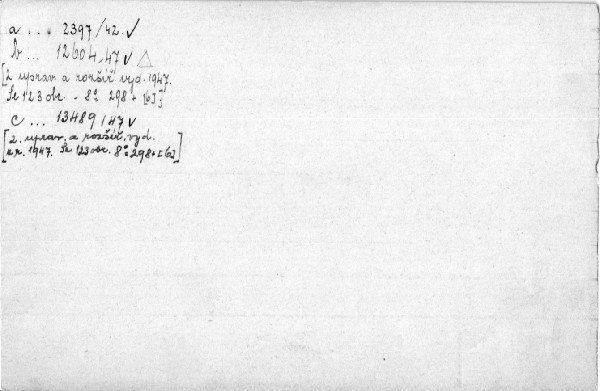 a ... 2397/42 ✓
b ... 12604/47 ✓ △
[2 uprav. a rozšíř. vyd. 1947.
Se 123 obr. - 8° 298 + [6]]
c ... 13489/47 ✓
[2. uprav. a rozšíř. vyd.
1947. Se 123 obr. 8° 298 + [6]]